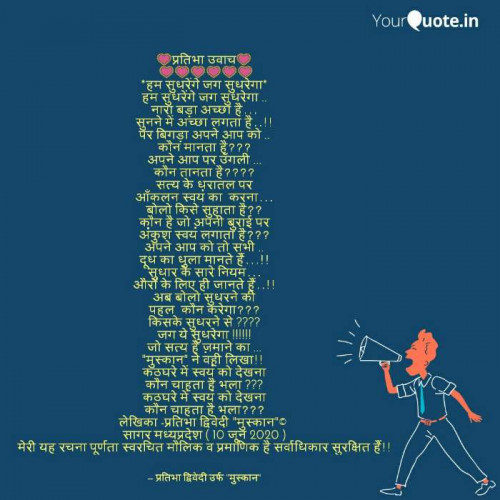 YourQuote.in
💗प्रतिभा उवाच💗
💗💗💗💗💗💗
*हम सुधरेंगे जग सुधरेगा*
हम सुधरेंगे जग सुधरेगा ..
नारा बड़ा अच्छा है ...
सुनने में अच्छा लगता है..!!
पर बिगड़ा अपने आप को ..
कौन मानता है???
अपने आप पर उँगली ...
कौन तानता है????
सत्य के धरातल पर
आँकलन स्वयं का करना...
बोलो किसे सुहाता है??
कौन है जो अपनी बुराई पर
अंकुश स्वयं लगाता है???
अपने आप को तो सभी ..
दूध का धुला मानते हैं...!!
सुधार के सारे नियम...
औरों के लिए ही जानते हैं..!!
अब बोलो सुधरने की
पहल कौन करेगा???
किसके सुधरने से ????
जग ये सुधरेगा !!!!!!
जो सत्य है ज़माने का ...
"मुस्कान" ने वही लिखा!!
कठघरे में स्वयं को देखना
कौन चाहता है भला ???
कठघरे में स्वयं को देखना
कौन चाहता है भला???
लेखिका -प्रतिभा द्विवेदी "मुस्कान"©
सागर मध्यप्रदेश ( 10 जून 2020 )
मेरी यह रचना पूर्णता स्वरचित मौलिक व प्रमाणिक है सर्वाधिकार सुरक्षित हैं!!
– प्रतिभा द्विवेदी उर्फ "मुस्कान"